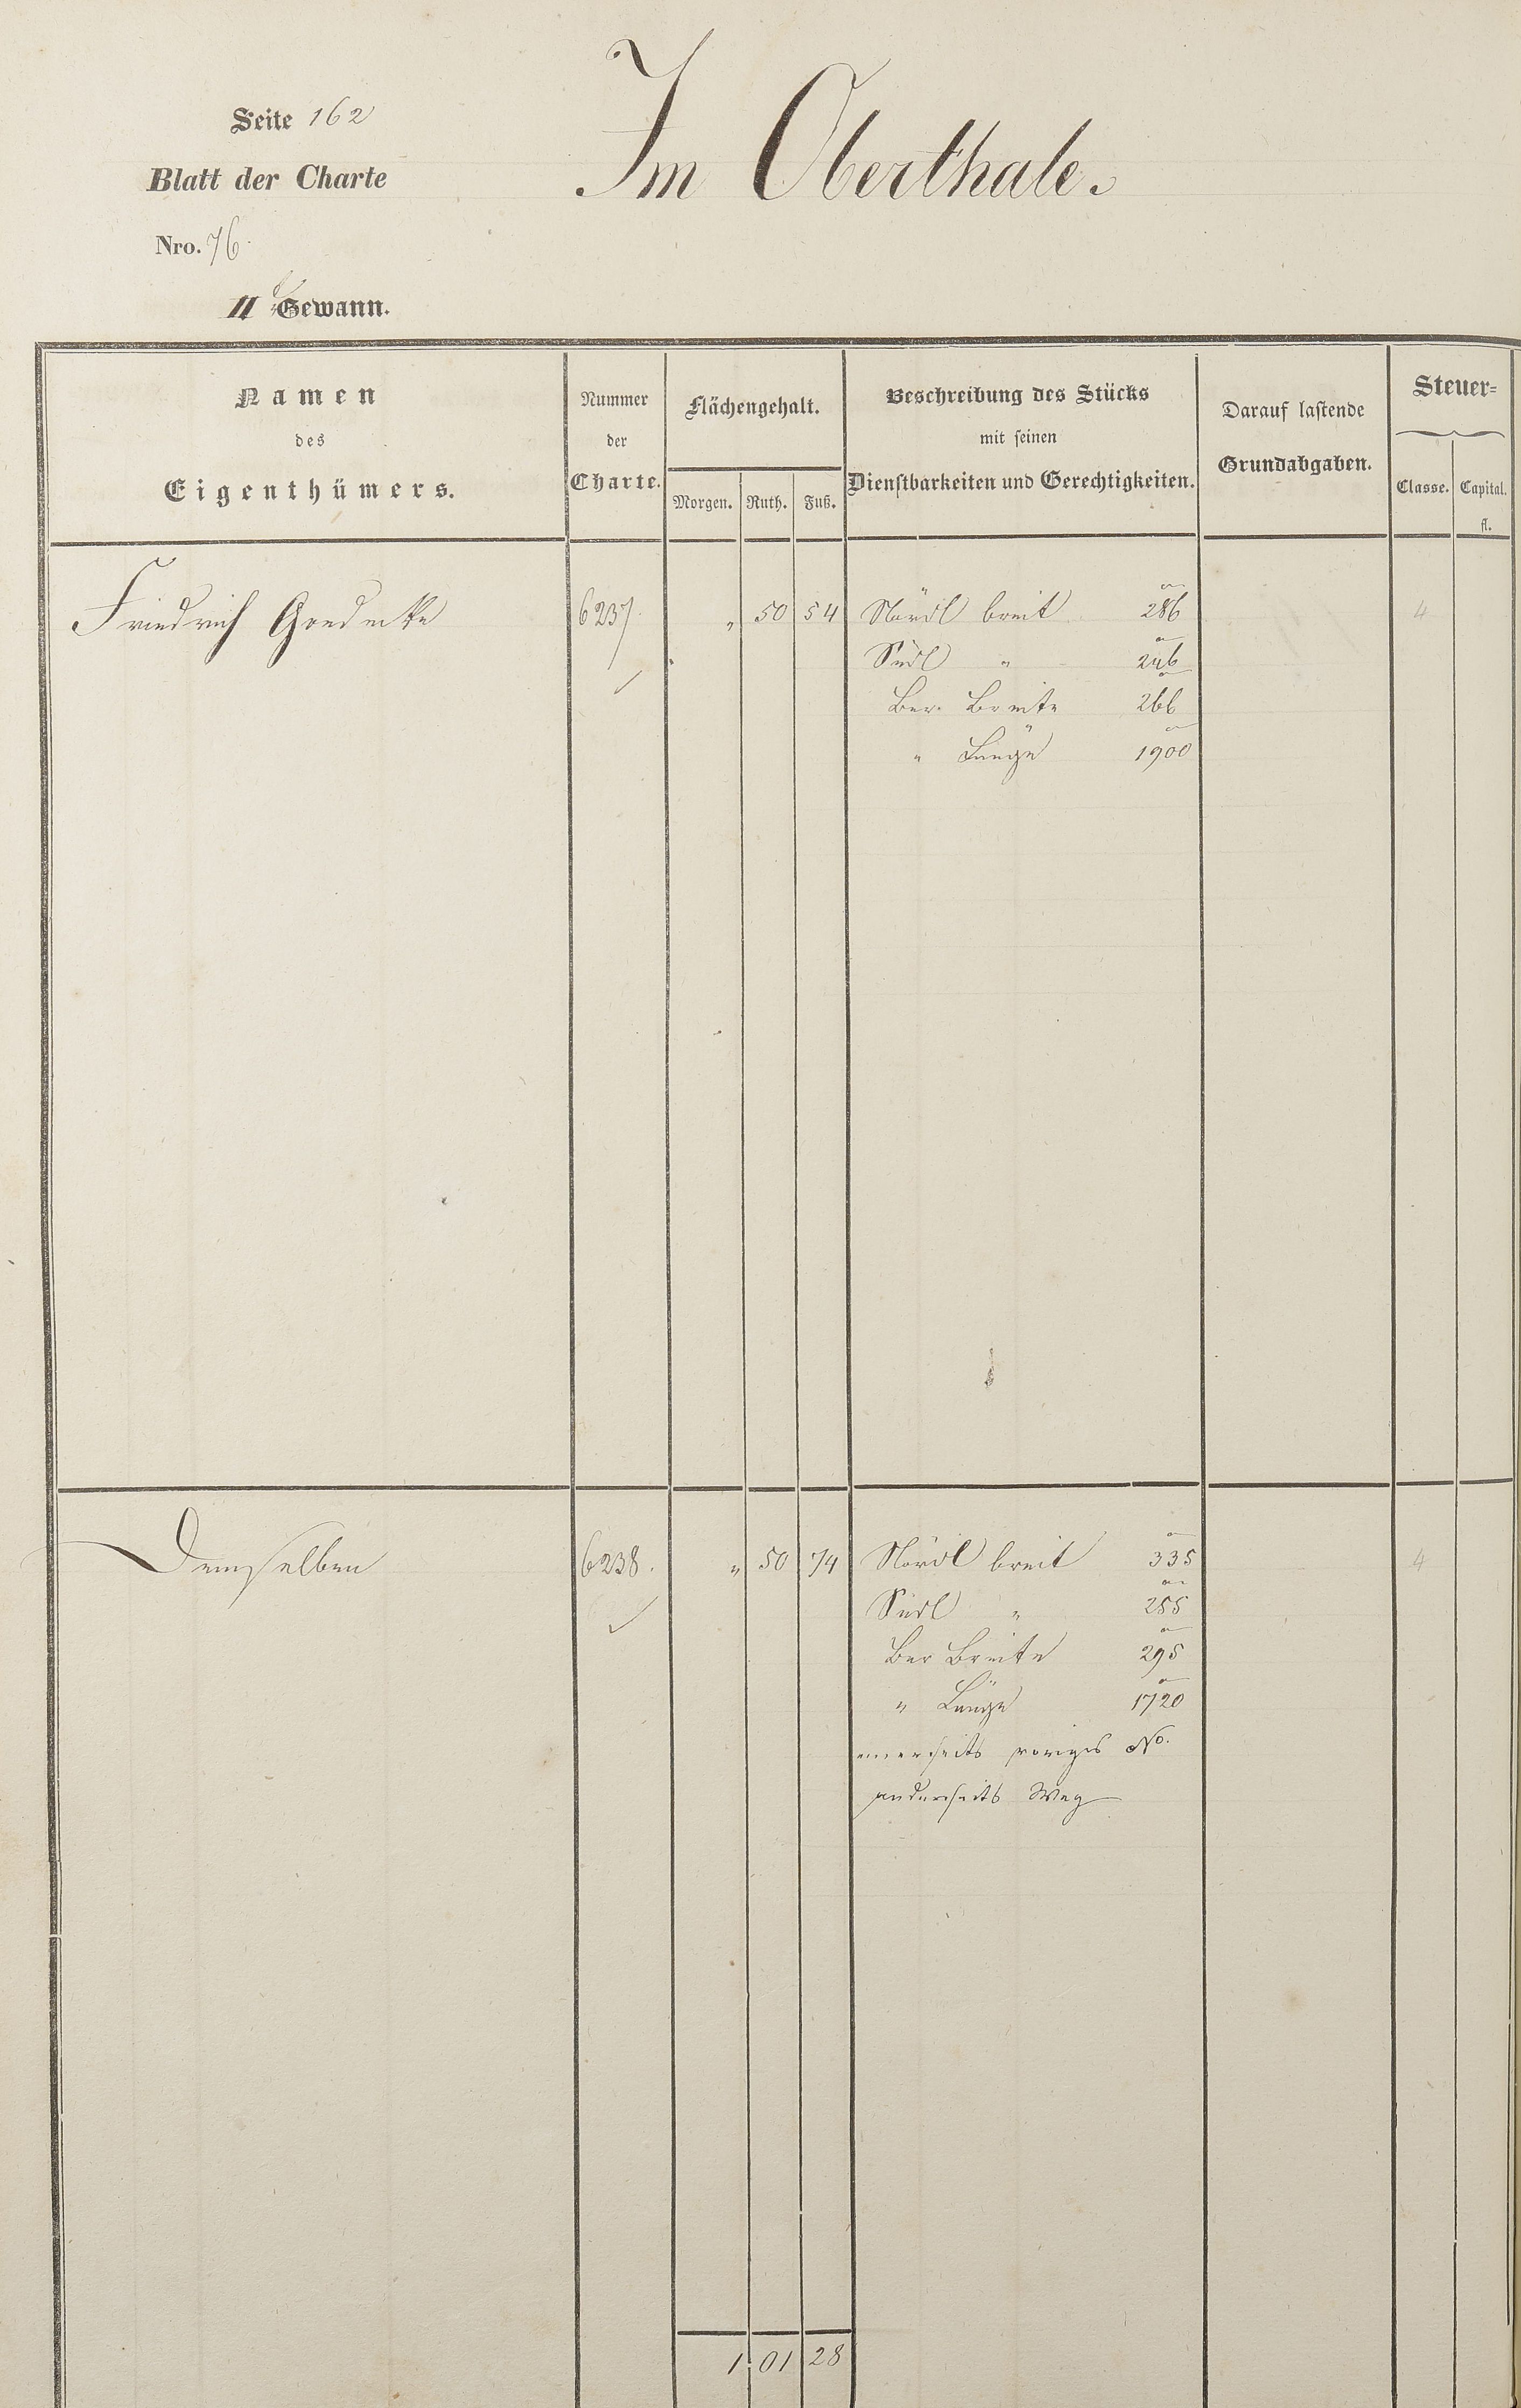 Seite 162
Im Oberthale.
Blatt der Charte
Nro. 76.
II Gewann.
Namen des Eigenthümers.
Nummer der Charte.
Flächengehalt.
Morgen. Ruth. Fuß.
Beschreibung des Stücks
mit seinen
Dienstbarkeiten und Gerechtigkeiten.
Darauf lastende
Grundabgaben.
Steuer=
Classe. Capital.
fl.
Friedrich Goedecke 6237. " 50 54 Nördl breit 286 4
Südl " 246
Ber. Breite 266
" Länge 1900
Demselben 6238. " 50 74 Nördl breit 335 4
Südl " 255
Ber Breite 295
" Länge 1720
einerseits voriges No.
anderseits Weg
1. 01 28